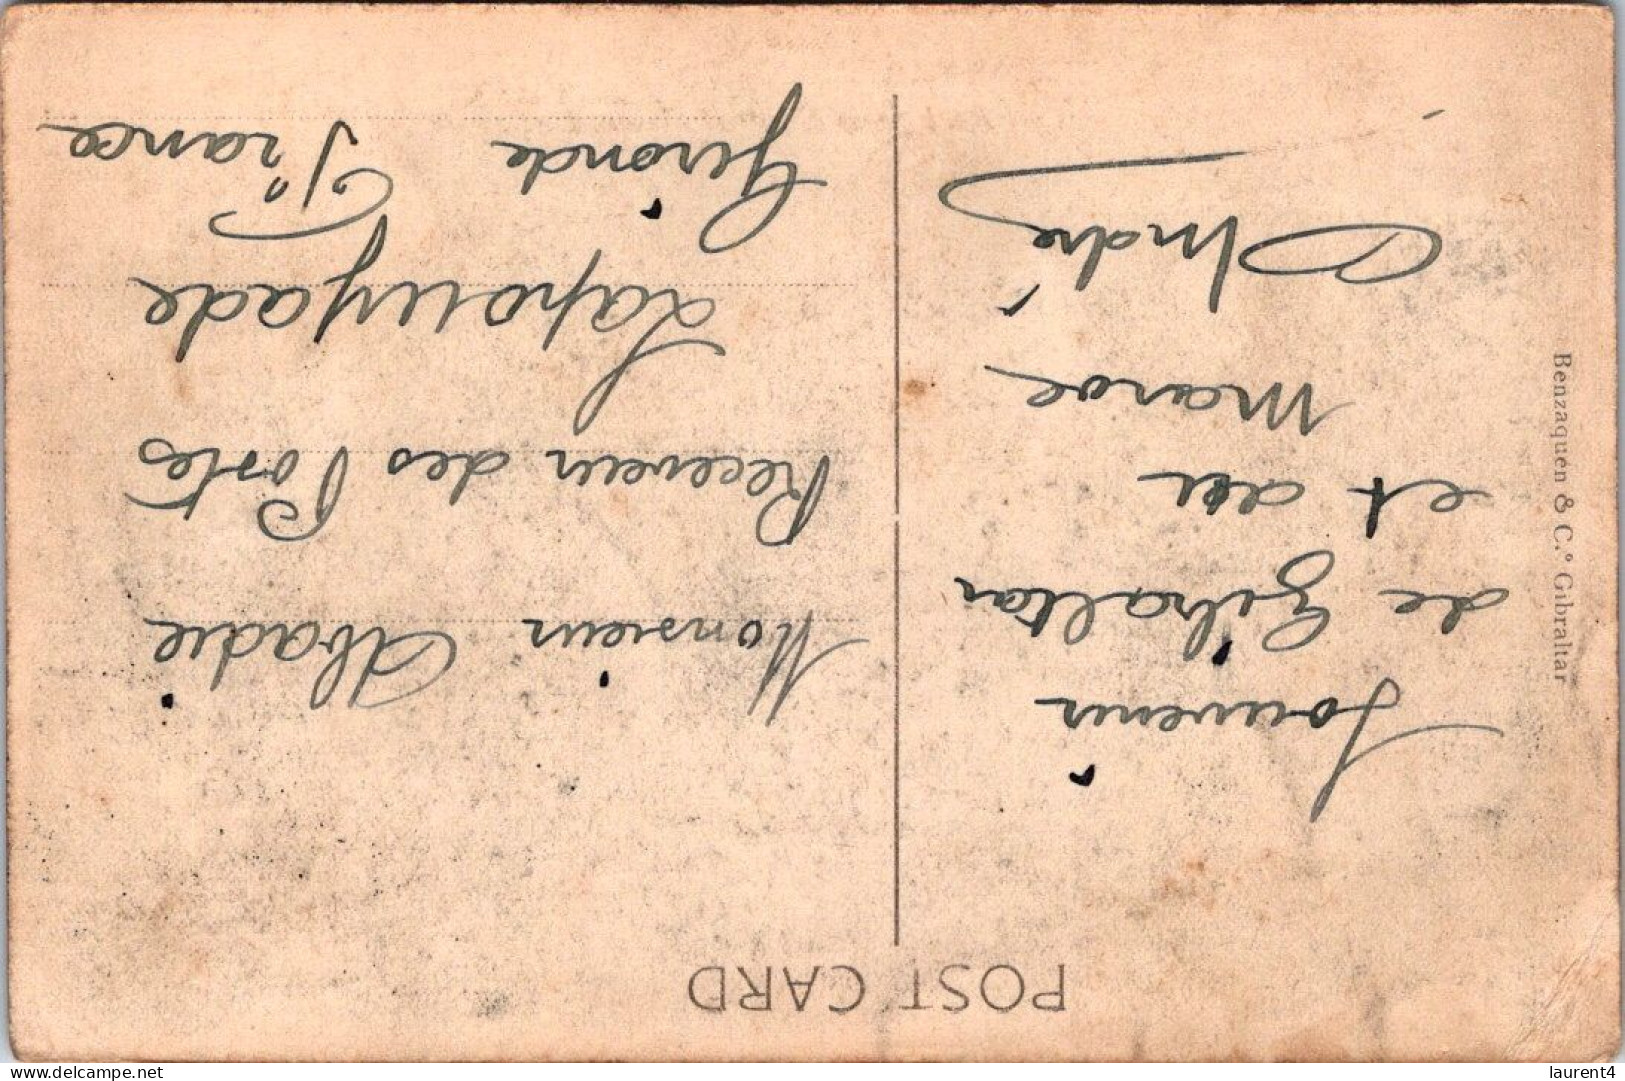 POST CARD
Souvenir
de Gibraltar
et du
Maroc
André
Monsieur Abadie
Receveur des Postes
Lapouyade
Gironde France
Benzaquen & C.º Gibraltar
delcampe.net
laurent4